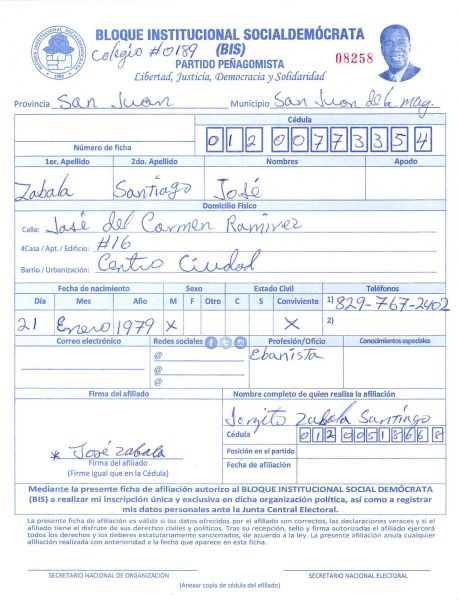 BLOQUE INSTITUCIONAL SOCIALDEMÓCRATA
Colegio #0189 (BIS)
PARTIDO PEÑAGOMISTA
08258
Libertad, Justicia, Democracia y Solidaridad
Provincia San Juan Municipio San Juan de la mag.
Cédula
Número de ficha 01200773354
1er. Apellido 2do. Apellido Nombres Apodo
Zabala Santiago José
Domicilio Físico
Calle: José del Carmen Ramirez
#Casa / Apt. / Edificio: #16
Barrio / Urbanización: Centro Ciudad
Fecha de nacimiento Sexo Estado Civil Teléfonos
Día Mes Año M F Otro C S Conviviente 1) 829-767-2402
21 Enero 1979 X X 2)
Correo electrónico Redes sociales Profesión/Oficio Conocimientos especiales
@ Ebanista
@
@
Firma del afiliado Nombre completo de quien realiza la afiliación
Jorgito Zabala Santiago
Cédula 01200518668
* José Zabala Posición en el partido
Firma del afiliado Fecha de afiliación
(Firme igual que en la Cédula)
Mediante la presente ficha de afiliación autorizo al BLOQUE INSTITUCIONAL SOCIAL DEMÓCRATA
(BIS) a realizar mi inscripción única y exclusiva en dicha organización política, así como a registrar
mis datos personales ante la Junta Central Electoral.
La presente ficha de afiliación es válida si los datos ofrecidos por el afiliado son correctos, las declaraciones veraces y si el
afiliado tiene el disfrute de sus derechos civiles y políticos. Tras su recepción, sello y firma autorizadas el afiliado ejercerá
todos los derechos y los deberes estatutariamente sancionados, de acuerdo a la ley. La presente afiliación anula cualquier
afiliación realizada con anterioridad a la fecha que aparece en esta ficha.
SECRETARIO NACIONAL DE ORGANIZACIÓN SECRETARIO NACIONAL ELECTORAL
(Anexar copia de cédula del afiliado)